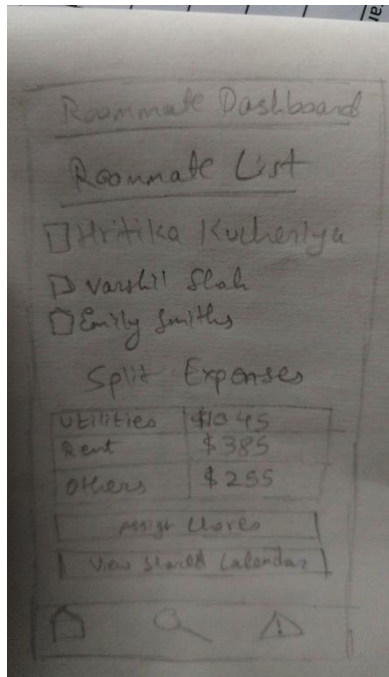 Roommate Dashboard
Roommate List
Hritika Kucheriya
Varshil Shah
Emily Smiths
Split Expenses
Utilities $1045
Rent $385
Others $255
Assign Chores
View Shared Calendar